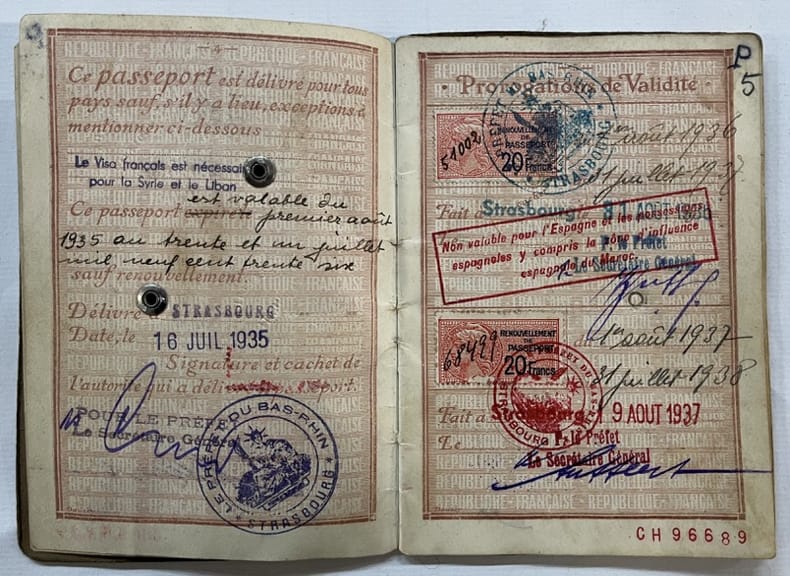 — 4 —
Ce passeport est délivré pour tous
pays sauf, s'il y a lieu, exceptions à
mentionner ci-dessous
Le Visa français est nécessai
pour la Syrie et le Liban
est valable du
Ce passeport expirera premier août
1935 au trente et un juillet
mil neuf cent trente six
sauf renouvellement.
Délivré STRASBOURG
Date, le 16 JUIL 1935
Signature et cachet de
l'autorité qui a délivré le passeport.
POUR LE PREFET
Le Secrétaire Général
LE PRÉFET DU BAS-RHIN
* STRASBOURG *
P
5
Prorogations de Validité
51002
RENOUVELLEMENT
DE
PASSEPORT
20 Francs
PREFET DU BAS-RHIN
STRASBOURG
août 1936
31 juillet 1937
Fait à Strasbourg le 31 AOUT 1936
Non valable pour l'Espagne et les possessions
espagnoles y compris la zône d'influence
espagnole du Maroc.
P. le Préfet
Le Secrétaire Général
68499
RENOUVELLEMENT
DE
PASSEPORT
20 Francs
du 1er août 1937
31 juillet 1938
Fait à Strasbourg 9 AOUT 1937
Le P. le Préfet
Le Secrétaire Général
CH96689